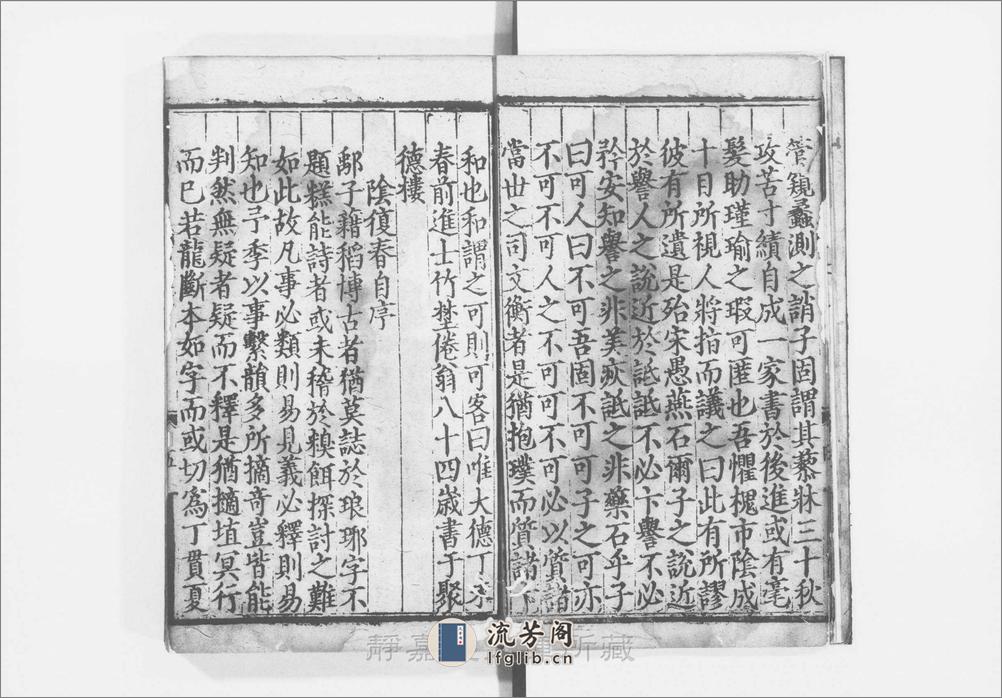 管窺蠡測之誚子固謂其藜牀三十秋
攻苦寸績自成一家書於後進或有毫
髮助瑾瑜之瑕可匿也吾懼槐市陰成
十目所視人將指而議之曰此有所謬
彼有所遺是殆宋愚燕石爾子之說近
於譽人之說近於詆詆不必卞譽不必
矜安知譽之非美疢詆之非藥石乎子
曰可人曰不可吾固不可可子之可亦
不可不可人之不可可不可必以質諸
當世之司文衡者是猶抱璞而質諸
和也和謂之可則可客曰唯大德丁未
春前進士竹埜倦翁八十四歲書于聚
德樓
陰復春自序
鄅子藉稻博古者猶莫誌於琅琊字不
題糕能詩者或未稽於糗餌探討之難
如此故凡事必類則易見義必釋則易
知也予季以事繫韻多所摘奇豈皆能
判然無疑者疑而不釋是猶擿埴冥行
而已若龍斷本如字而或切爲丁貫夏
靜嘉 所藏
流芳阁
lfglib.cn